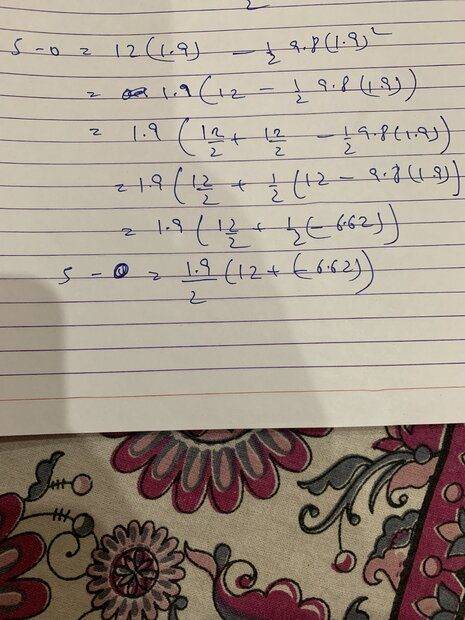 2
5 - 0 = 12(1.9) - 1/2 9.8(1.9)²
= 1.9(12 - 1/2 9.8(1.9))
= 1.9(12/2 + 12/2 - 1/2 9.8(1.9))
= 1.9(12/2 + 1/2(12 - 9.8(1.9)]
= 1.9(12/2 + 1/2(-6.62)]
5 - 0 = 1.9/2(12 + (-6.62))